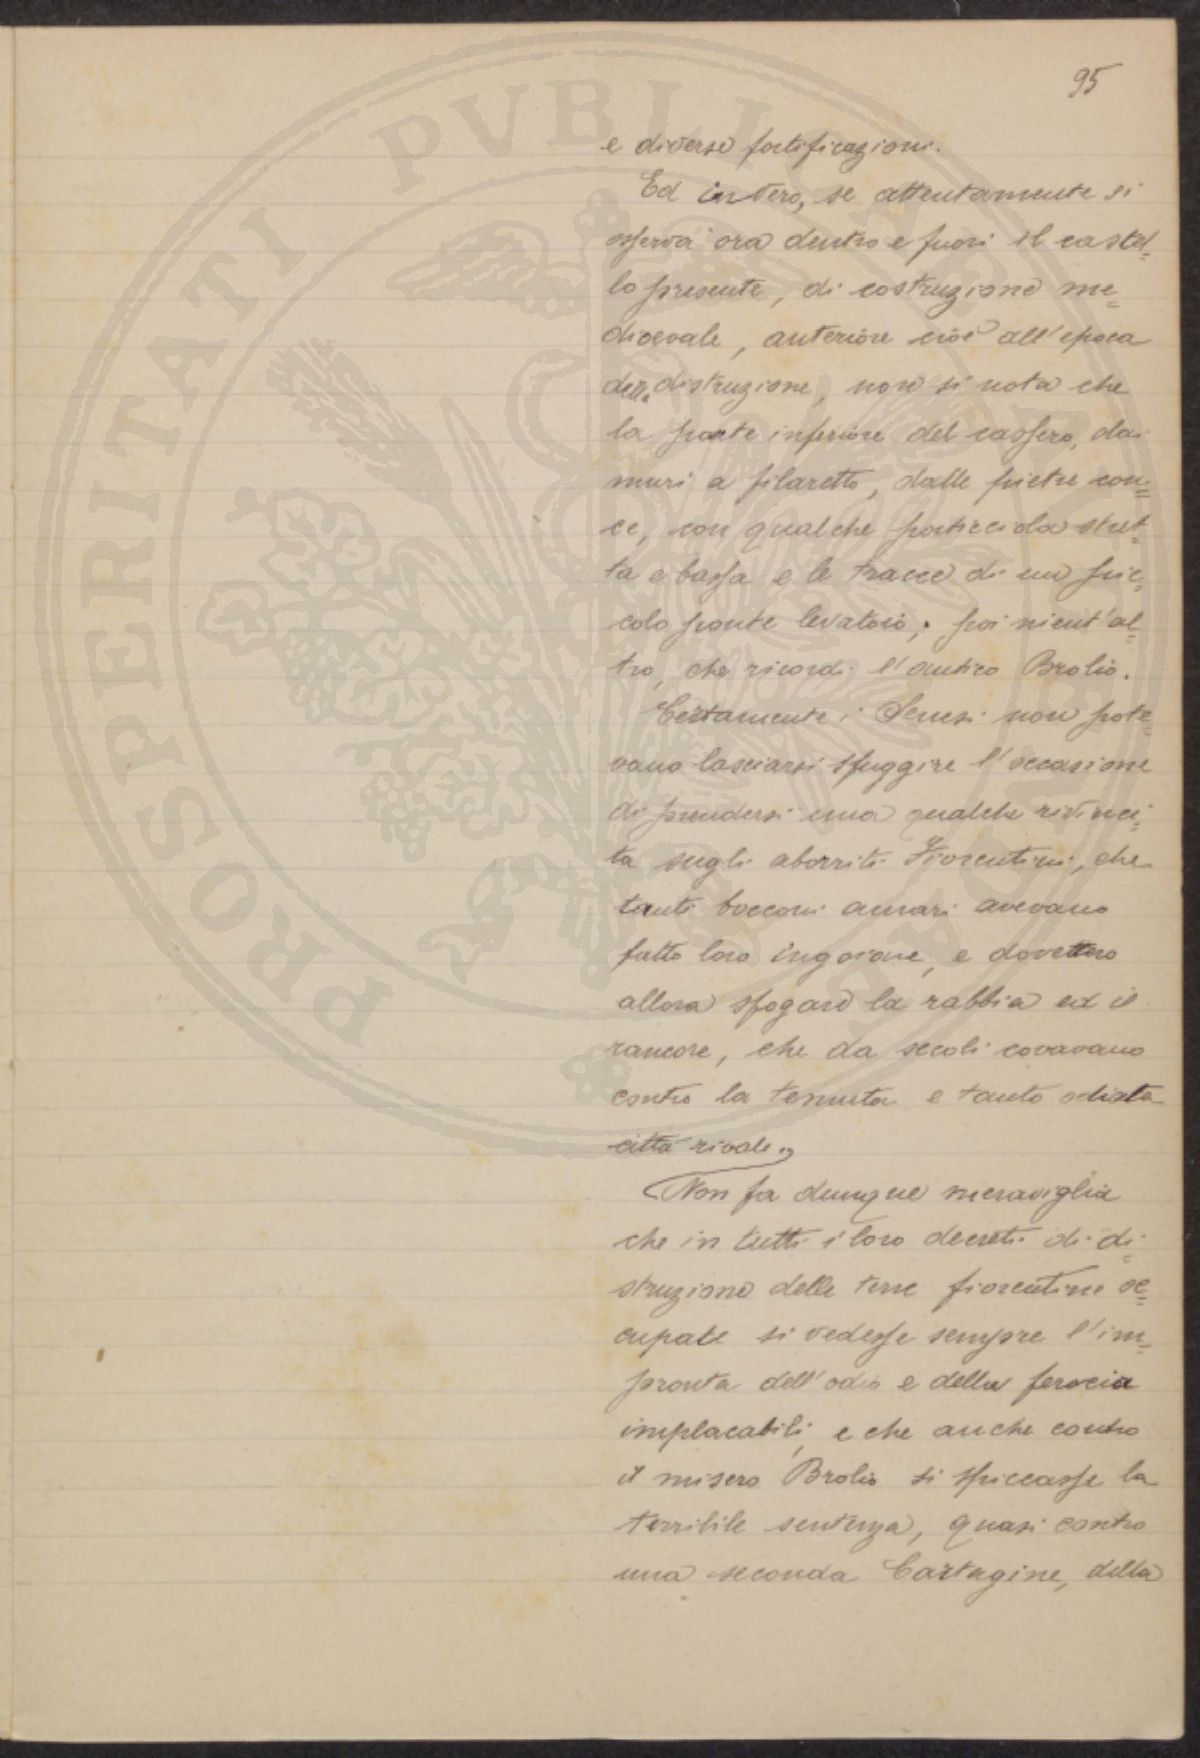 95
e diverse fortificazioni.
Ed in vero, se attentamente si
osserva ora dentro e fuori il castel=
lo presente, di costruzione me=
dioevale, anteriore cioè all'epoca
della distruzione, non si nota che
la parte inferiore del cassero, dai
muri a filaretto, dalle pietre con=
ce, con qualche porticciola stret=
ta e bassa e le tracce di un pic=
colo ponte levatoio; poi nient'al=
tro, che ricordi l'antico Brolio.
Certamente i Senesi non pote=
vano lasciarsi sfuggire l'occasione
di prendersi una qualche rivinci=
ta sugli aborriti Fiorentini, che
tanti bocconi amari avevano
fatto loro ingoiare, e dovettero
allora sfogare la rabbia ed il
rancore, che da secoli covavano
contro la temuta e tanto odiata
città rivale.
Non fa dunque meraviglia
che in tutti i loro decreti di di=
struzione delle terre fiorentine oc=
cupate si vedesse sempre l'im=
pronta dell'odio e della ferocia
implacabili, e che anche contro
il misero Brolio si spiccasse la
terribile sentenza, quasi contro
una seconda Cartagine, della
PROSPERITATI PVBLICAE